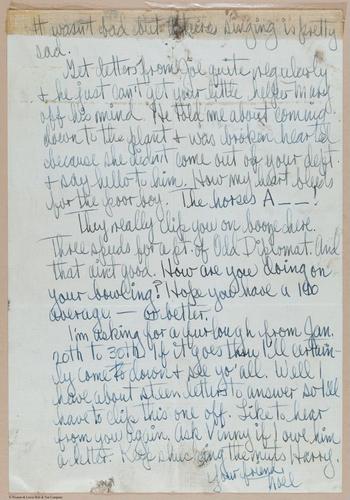 It wasn't bad but the singing is pretty
sad.
Get letters from Joe quite regularly
& he just can't get your little helper Mary
off his mind. He told me about coming
down to the plant & was broken hearted
because she didn't come out of your dept.
& say hello to him. How my heart bleeds
for the poor boy. The horses A——!
They really clip you on booze here.
Three spuds for a pt. of Old Diplomat. And
that ain't good. How are you doing on
your bowling? Hope you have a 180
average — or better.
I'm asking for a furlough from Jan.
20th to 30th. If it goes thru I'll certain-
ly come to down & see yo' all. Well I
have about steen letters to answer so I'll
have to clip this one off. Like to hear
from you again. Ask Vinny if I owe him
a letter. Keep shucking the nuts Harry.
Your friend